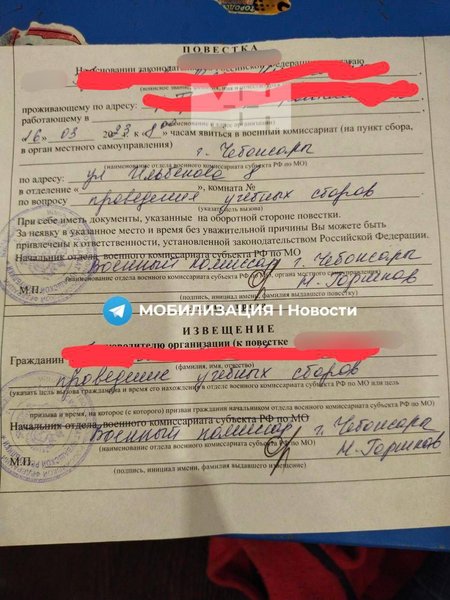 ПОВЕСТКА
На основании законодат Российской Федерации
проживающему по адресу:
работающему в
(наименование и класс организации)
"16" 03 2023 к 8⁰⁰ часам явиться в военный комиссариат (на пункт сбора,
в орган местного самоуправления) г. Чебоксары
(наименование отдела военного комиссариата субъекта РФ по МО)
по адресу: ул
в отделение « », комната №
по вопросу проведения учебных сборов
(указать цель вызова)
При себе иметь документы, указанные на оборотной стороне повестки.
За неявку в указанное место и время без уважительной причины Вы можете быть
привлечены к ответственности, установленной законодательством Российской Федерации.
Начальник отдела военного комиссариата субъекта РФ по МО
Военный комиссар г. Чебоксары
(наименование отдела военного комиссариата субъекта РФ по МО, органа местного самоуправления)
М.П. Н. Горшков
(подпись, инициал имени, фамилия выдавшего повестку)
МОБИЛИЗАЦИЯ | Новости
ИЗВЕЩЕНИЕ
руководителю организации (к повестке
Гражданин
(фамилия, имя, отчество)
проведение учебных сборов
(указать цель вызова гражданина и время его нахождения в отделе военного комиссариата субъекта РФ по МО или цель
призыва и время, на которое (с которого) призван гражданин начальником отдела военного комиссариата субъекта РФ по МО)
Начальник отдела военного комиссариата субъекта РФ по МО
Военный комиссар г. Чебоксары
(наименование отдела военного комиссариата субъекта РФ по МО)
М.П. Н. Горшков
(подпись, инициал имени, фамилия выдавшего извещение)